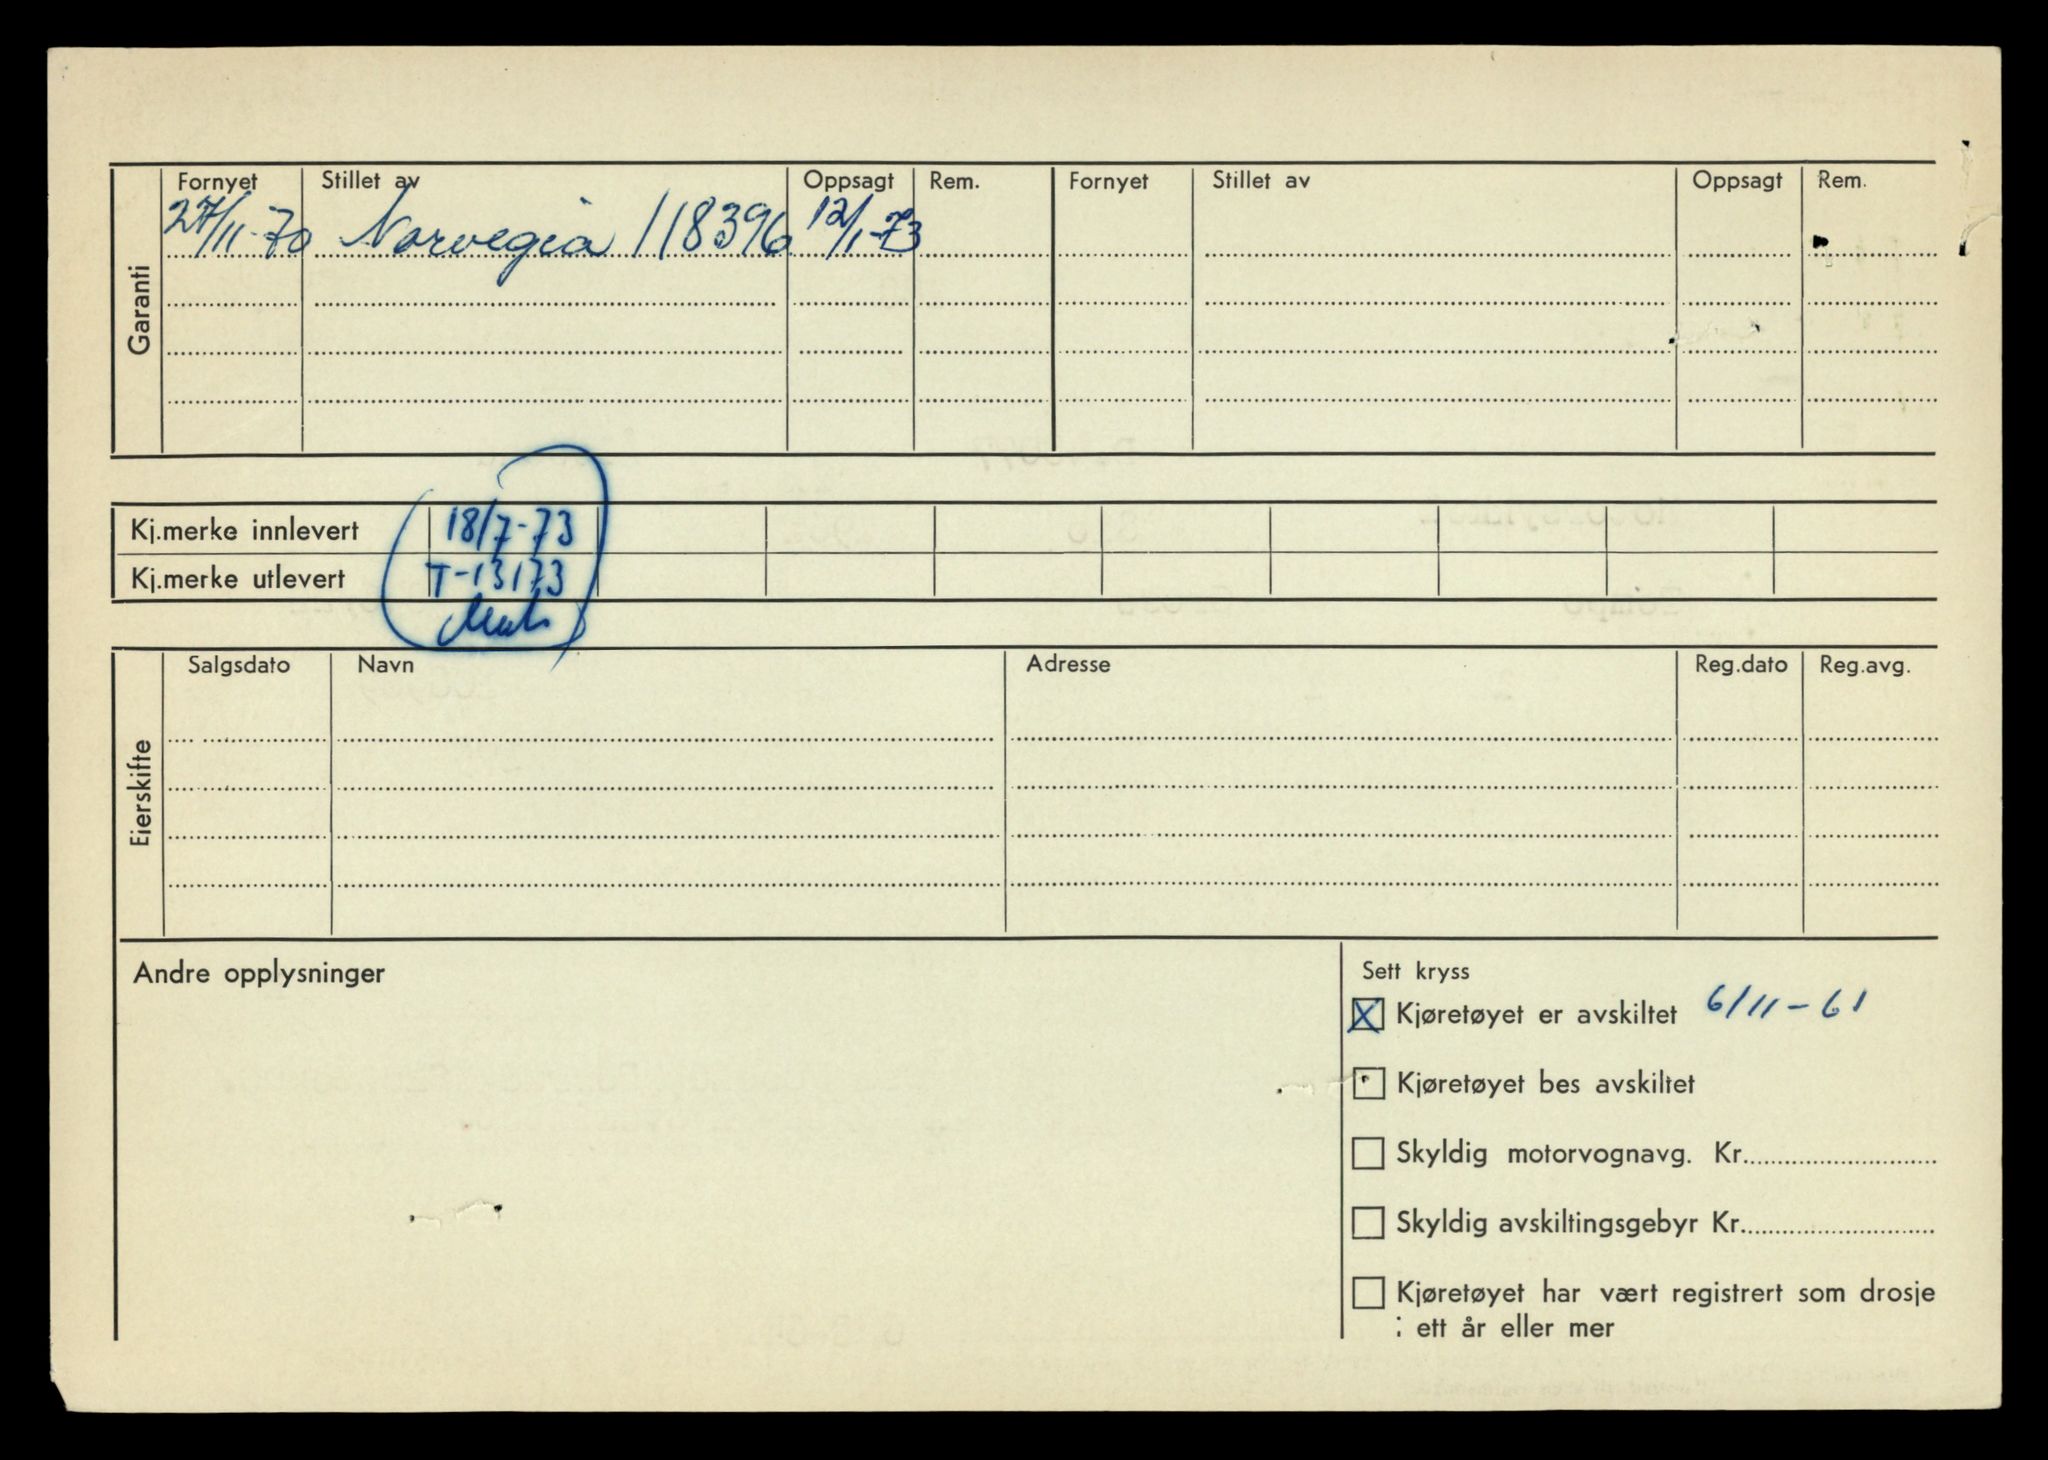 Garanti
Fornyet Stillet av Oppsagt Rem. Fornyet Stillet av Oppsagt Rem.
27/11-70 Norvegia 118396 12/1-73
Kj.merke innlevert 18/7-73
Kj.merke utlevert T-13173
Eierskifte
Salgsdato Navn Adresse Reg.dato Reg.avg.
Andre opplysninger
Sett kryss
X Kjøretøyet er avskiltet 6/11-61
Kjøretøyet bes avskiltet
Skyldig motorvognavg. Kr
Skyldig avskiltingsgebyr Kr
Kjøretøyet har vært registrert som drosje
i ett år eller mer